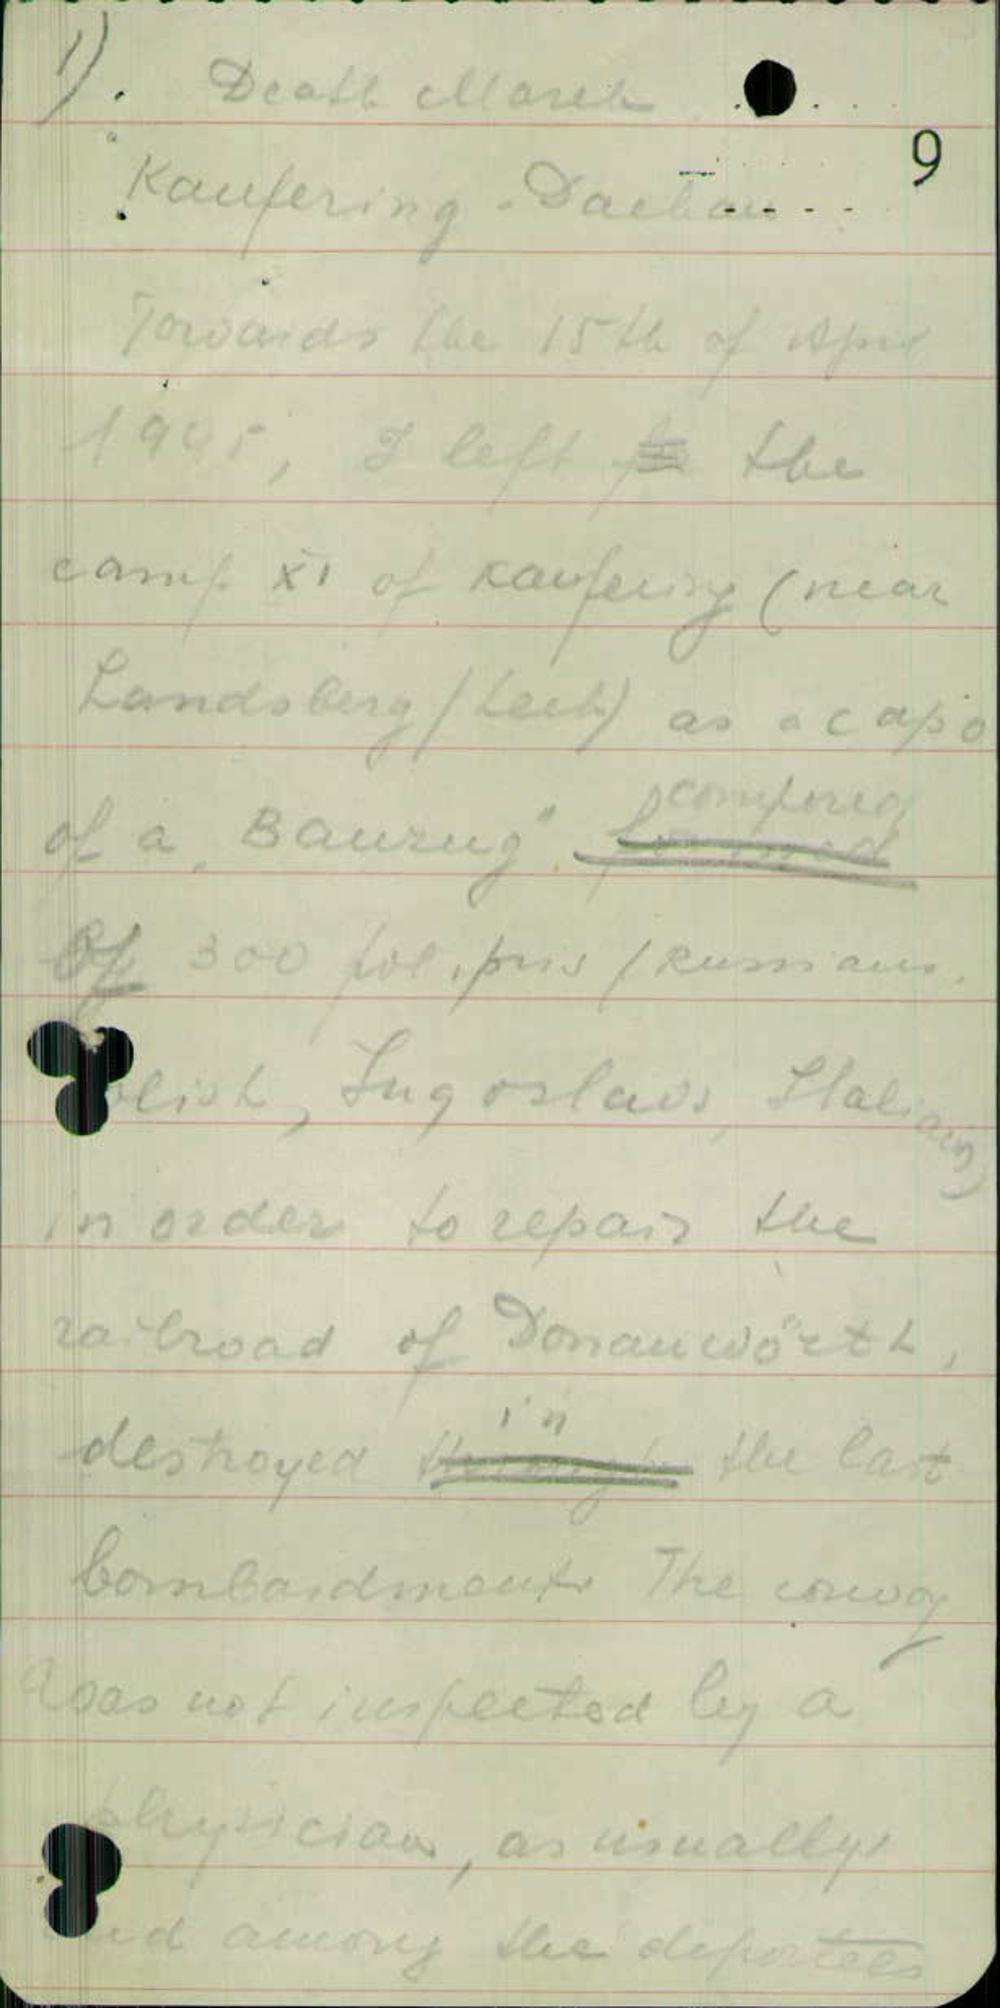 1). Death March
9
Kaufering - Dachau
Towards the 15th of April
1945, I left the
camp XI of Kaufering (near
Landsberg / Lech) as a capo
composed
of a "Bauzug" formed
Of 300 pol. pris / Russians,
olish, Jugoslavs, Italians)
in order to repair the
railroad of Donauwörth,
in
destroyed through the last
bombardment. The convoy
was not inspected by a
physician, as usually,
nd among the deportees